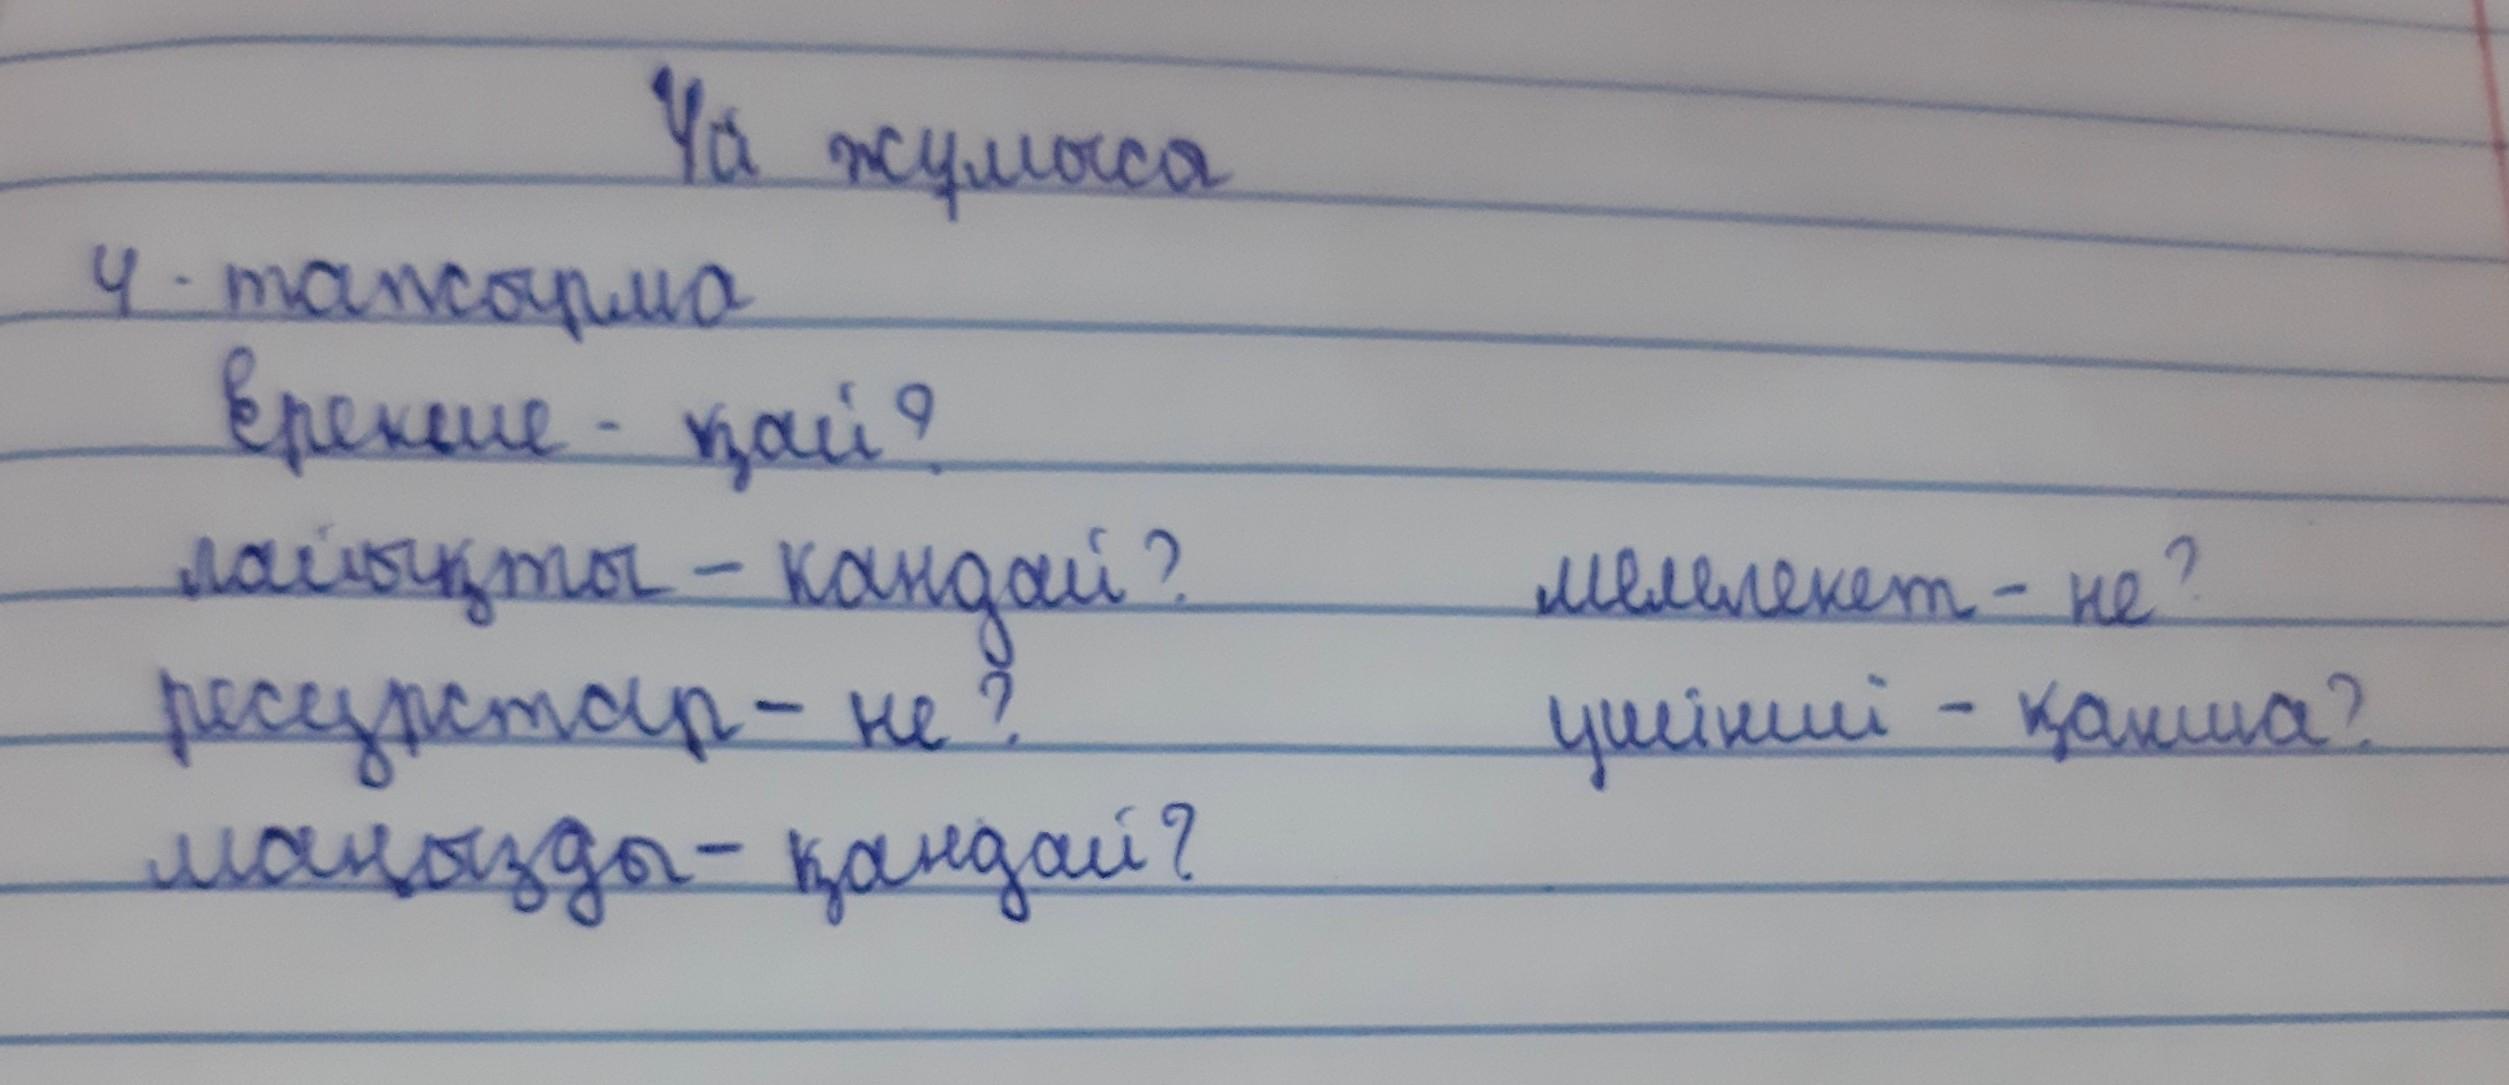 Үй жұмысы
4 - тапсырма
Ерекше - қай?
лайықты - кандай? мемлекет - не?
ресурстар - не? үшінші - қанша?
маңызды - қандай?